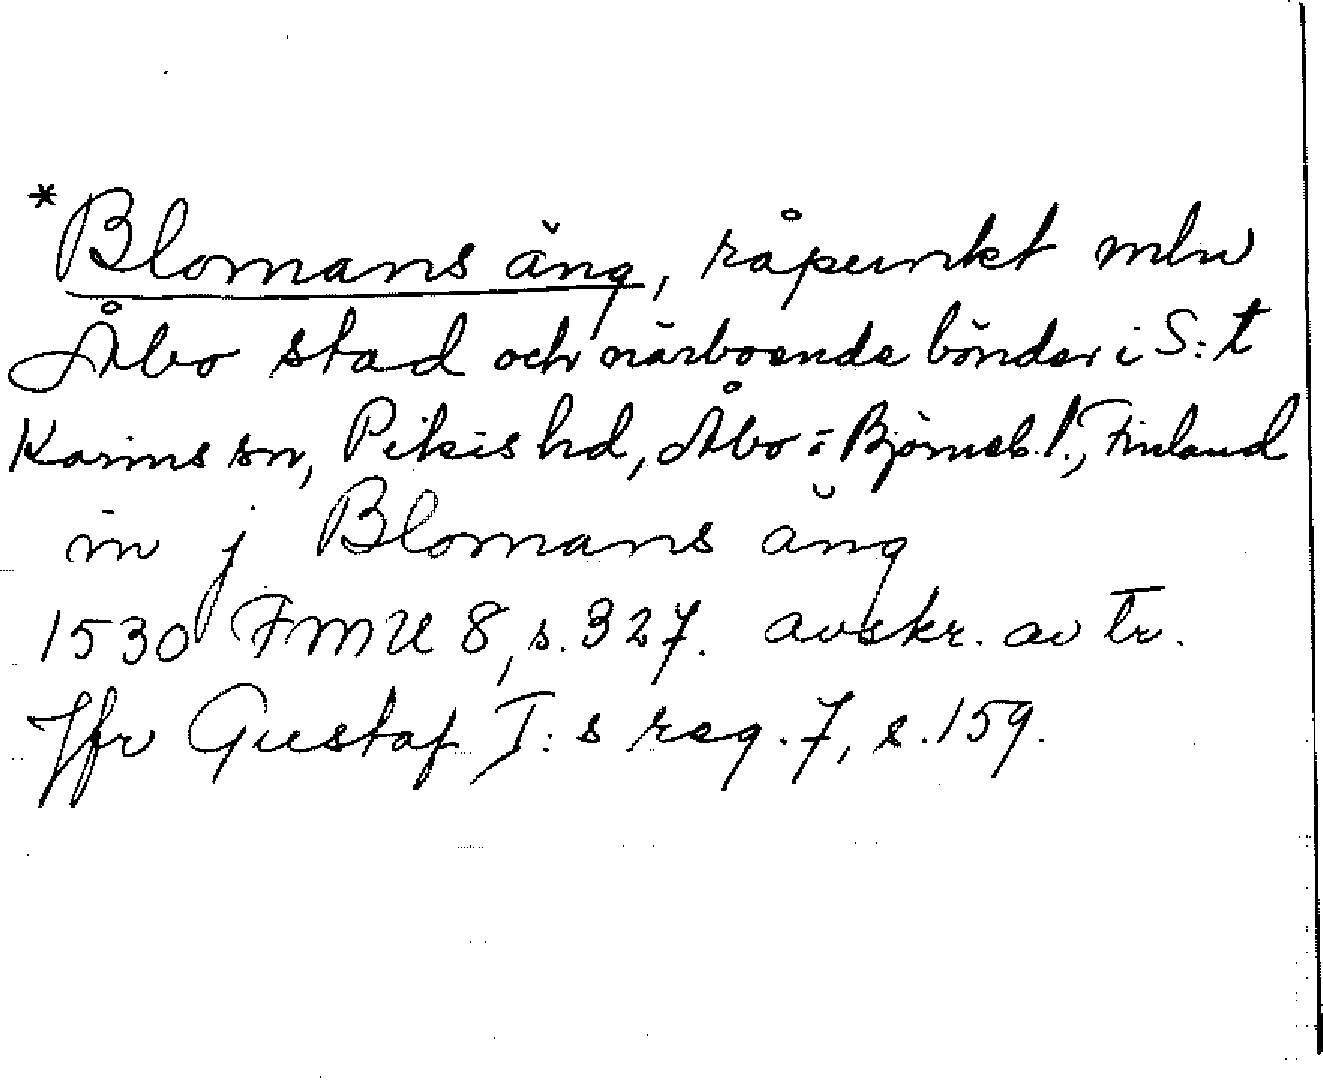 *Blomans äng, råpunkt mln
Åbo stad och närboende bönder i S:t
Karins sn, Pikis hd, Åbo o Björneb. l., Finland
in j Blomans äng
1530 FMU 8, s. 327. avskr. av tr.
Jfr Gustaf I:s reg. 7, s. 159.